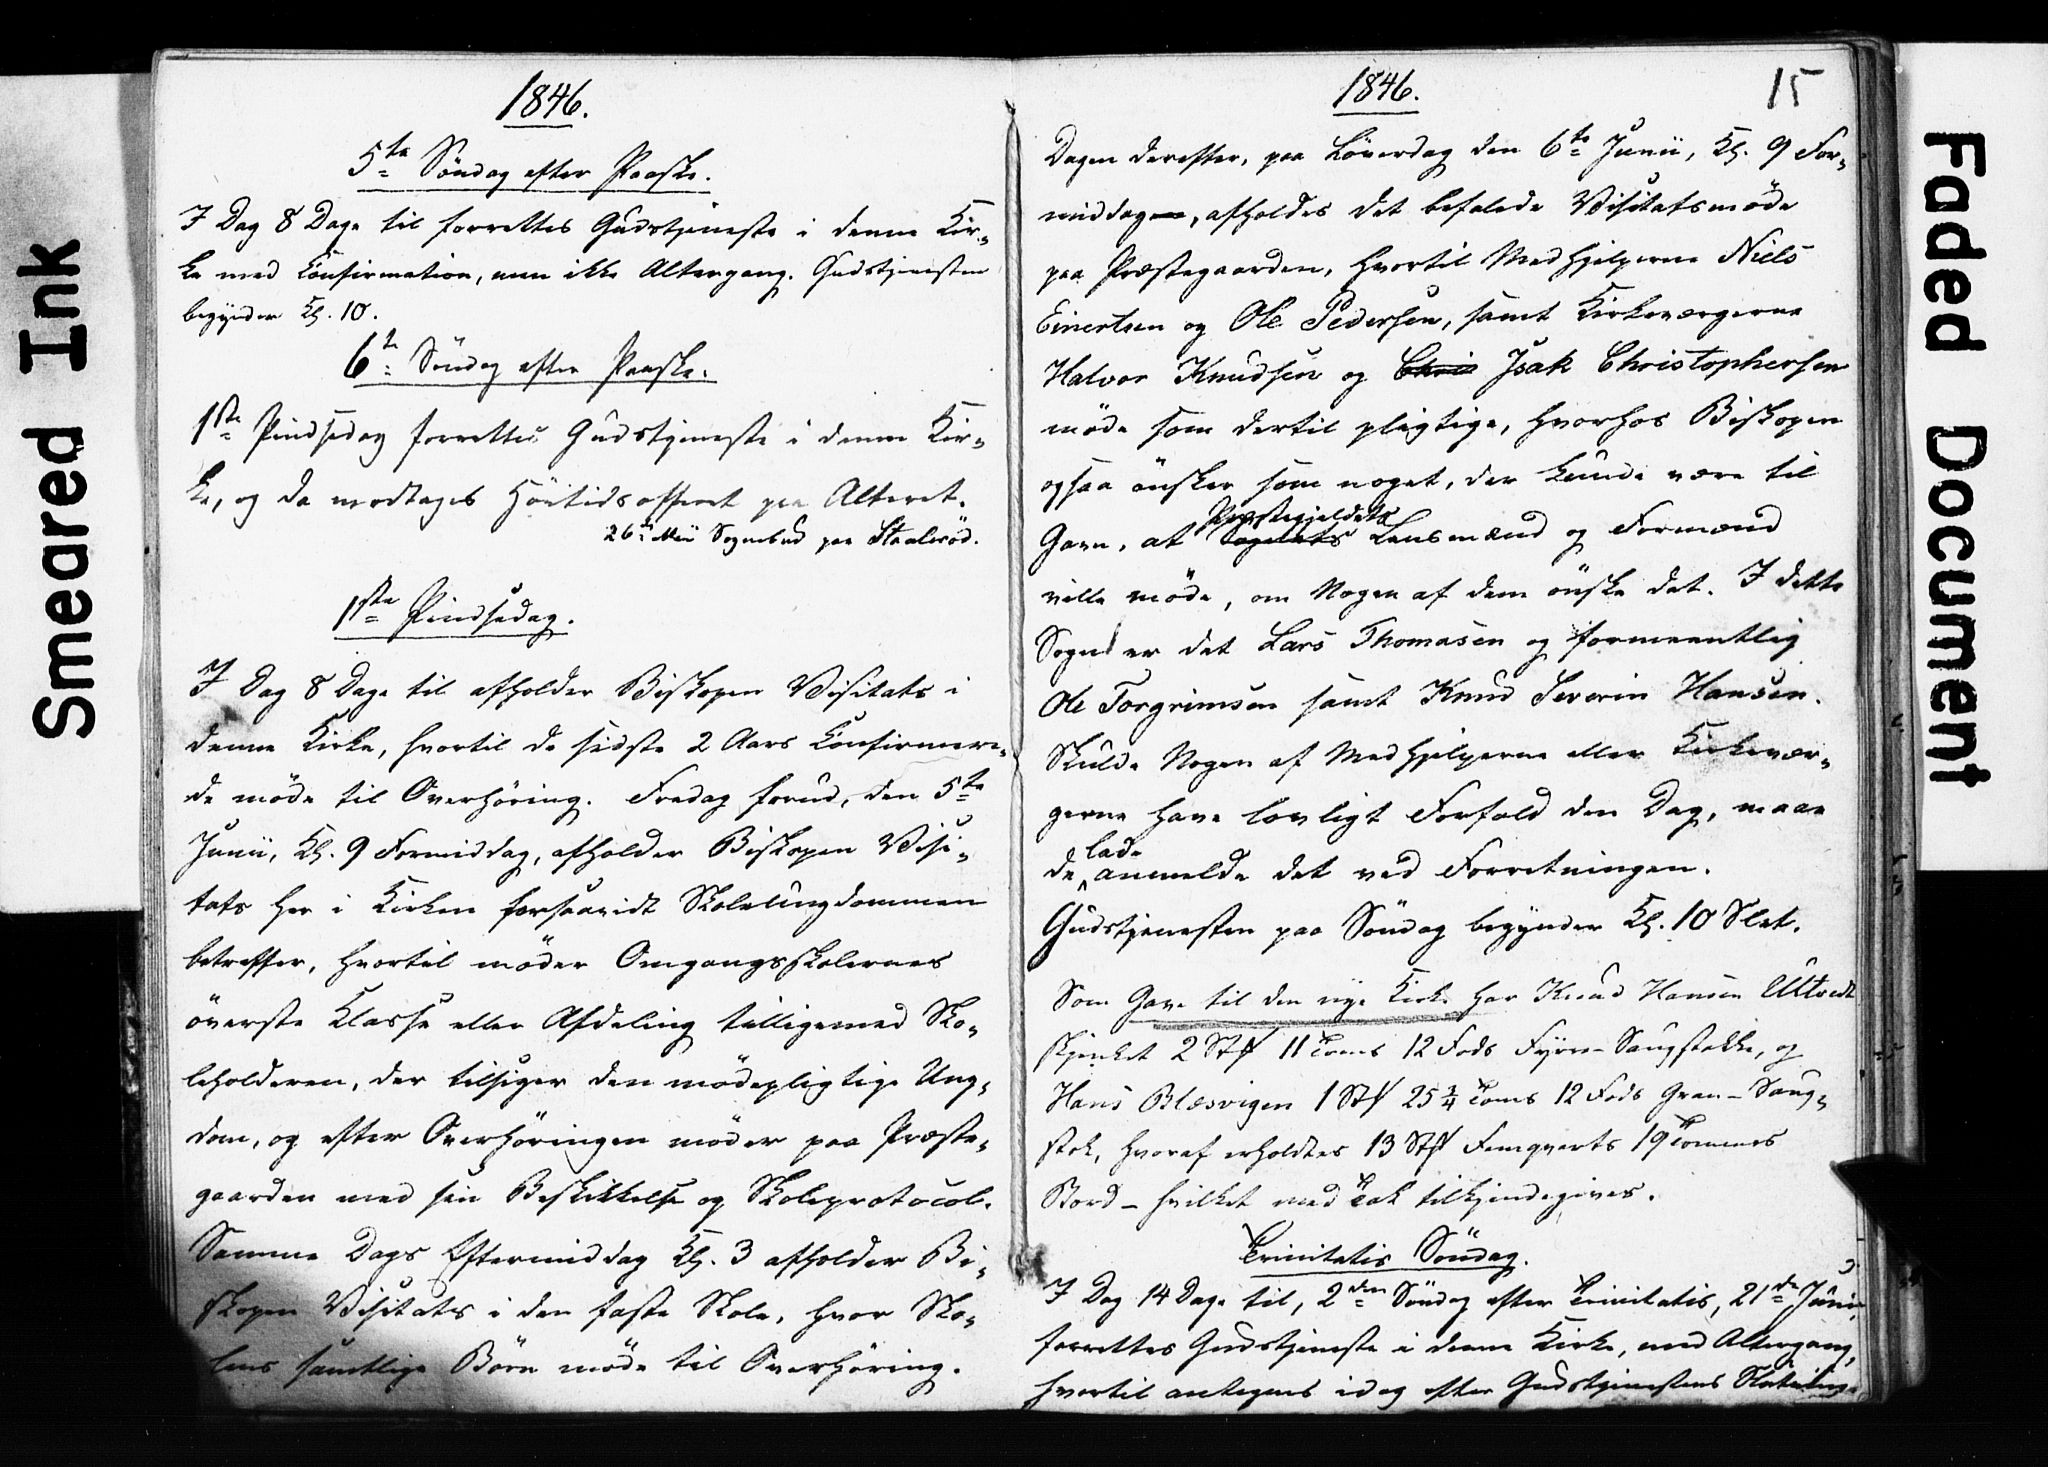 Smeared Ink
1846.
5te Söndag efter Paaske.
I Dag 8 Dage til forrettes Gudstjeneste i denne Kir-
ke med Confirmation, men ikke Altergang. Gudstjenesten
begynder Kl. 10.
6te Söndag efter Paaske.
1ste Pindsedag forrettes Gudstjeneste i denne Kir-
ke, og da modtages Höitidsofferet paa Alteret.
26de Mai Sognebud paa Staalerød.
1ste Pindsedag.
I Dag 8 Dage til afholder Biskopen Visitats i
denne Kirke, hvortil de sidste 2 Aars Confirmere-
de möde til Overhöring. Fredag forud, den 5te
Junii, Kl. 9 Formiddag, afholder Biskopen Visi-
tats her i Kirken forsaavidt Skoleungdommen
betreffer, hvortil möder Omgangsskolernes
överste Klasse eller Afdeling tilligemed Sko-
leholderen, der tilsiger den mödepligtige Ung-
dom, og efter Overhöringen möder paa Præste-
gaarden med sin Beskikkelse og Skoleprotocol.
Samme Dags Eftermiddag Kl. 3 afholder Bi-
skopen Visitats i den faste Skole, hvor Sko-
lens samtlige Börn möde til Overhöring.
1846.
15
Dagen derefter, paa Löverdag den 6te Junii, Kl. 9 For-
middag, afholdes det befalede Visitatsmöde
paa Præstegaarden, hvortil Medhjelperne Niels
Einertsen og Ole Pedersen, samt Kirkeværgerne
Halvor Knudsen og Chris Isak Christophersen
möde som dertil pligtige, hvorhos Biskopen
ogsaa önsker som noget, der kunde være til
Præstegjeldets
Gavn, at Sognets Lensmænd og Formænd
ville möde, om Nogen af dem önske det. I dette
Sogn er det Lars Thomasen og formeentlig
Ole Torgrimsen samt Knud Severin Hansen.
Skulde Nogen af Medhjelperne eller Kirkevær-
gerne have lovligt Forfald den Dag, maae
lade
de anmelde det ved Forretningen.
Gudstjenesten paa Söndag begynder Kl. 10 Slet.
Som Gave til den nye Kirke har Knud Hansen Ultvedt
skjenket 2 Stk 11 Toms 12 Fods Fyrre-Saugstokke, og
Hans Blæsvigen 1 Stk 25 3/4 Toms 12 Fods Gran-Saug-
stok, hvoraf erholdtes 13 Stk Femqvarts 19 Tommes
Bord - hvilket med Tak tilkjendegives.
Trinitatis Söndag.
I Dag 14 Dage til, 2den Söndag efter Trinitatis, 21de Junii,
forrettes Gudstjeneste i denne Kirke, med Altergang,
hvortil antegnes idag efter Gudstjenestens Slutning.
Faded Document